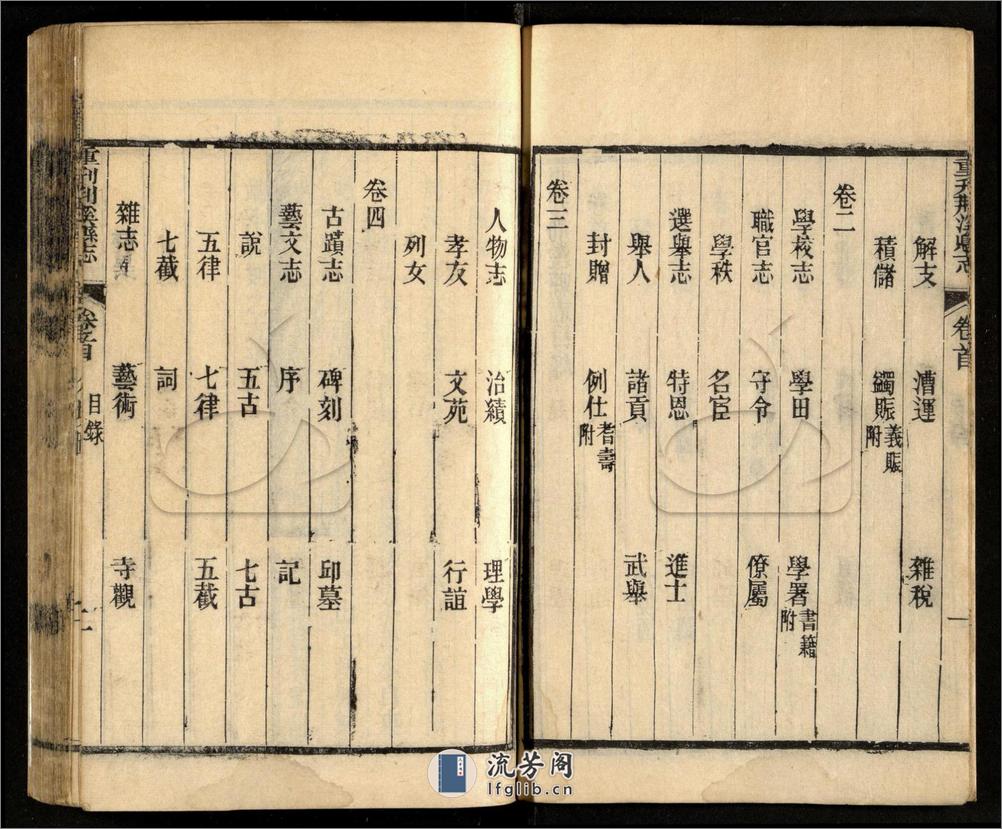 重刊荆溪縣志 卷首 一
解支 漕運 雜稅
積儲 蠲賑 義賑附
卷二
學校志 學田 學署 書籍附
職官志 守令 僚屬
學秩 名宦
選舉志 特恩 進士
舉人 諸貢 武舉
封贈 例仕 耆壽附
卷三
人物志 治績 理學
孝友 文苑 行誼
列女
卷四
古蹟志 碑刻 邱墓
藝文志 序 記
說 五古 七古
五律 七律 五截
七截 詞
雜志 藝術 寺觀
重刊荆溪縣志 卷之首 目錄
流芳阁
lfglib.cn